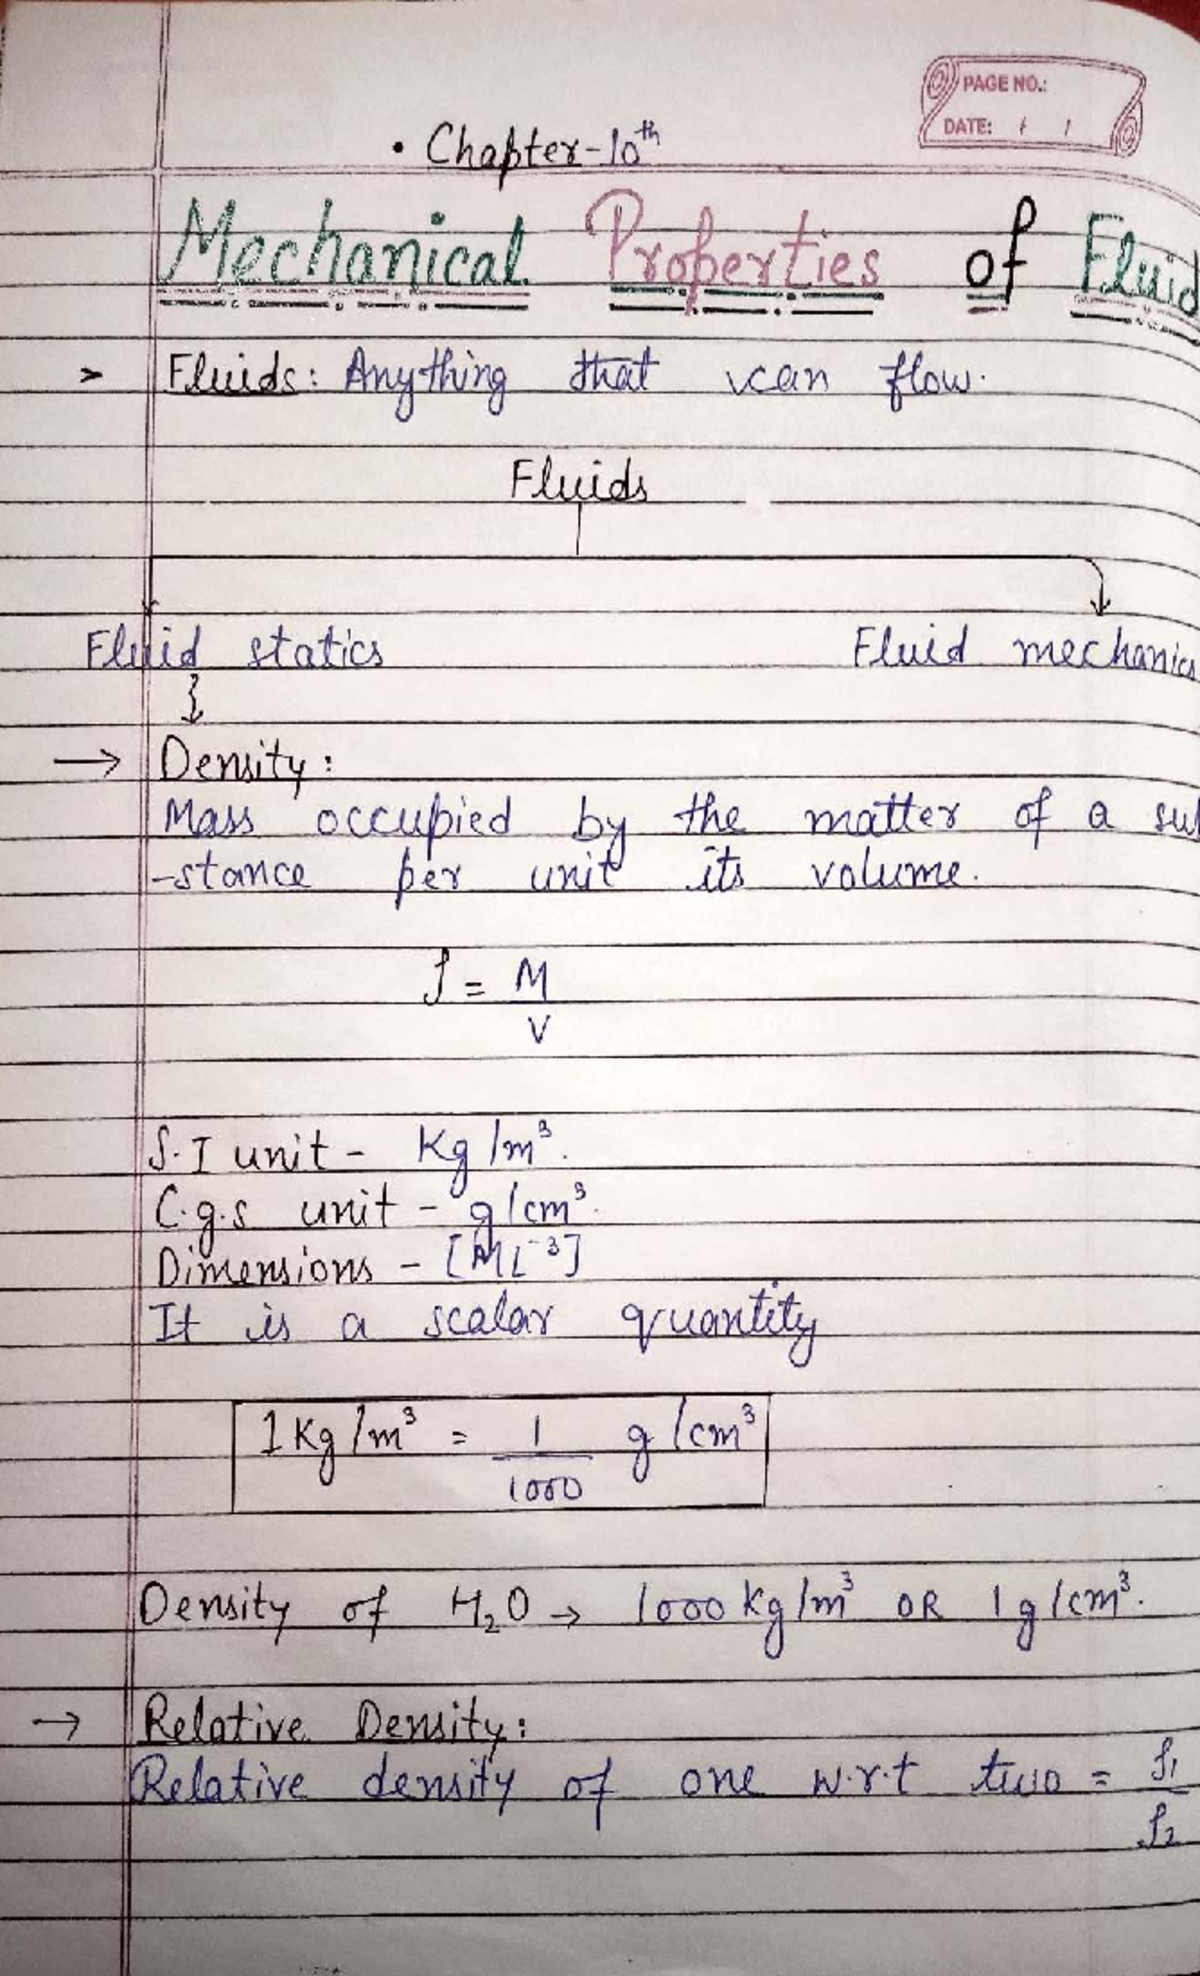 PAGE NO.:
DATE: / /
• Chapter-10th
Mechanical Properties of Fluid
> Fluids: Anything that can flow.
Fluids
Fluid statics Fluid mechanics
→ Density:
Mass occupied by the matter of a sub
-stance per unit its volume.
ρ = M
V
S.I unit - Kg/m³.
C.g.s unit - g/cm³.
Dimensions - [ML⁻³]
It is a scalar quantity
1Kg/m³ = 1 g/cm³
1000
Density of H₂O → 1000 Kg/m³ OR 1g/cm³.
→ Relative Density:
Relative density of one w.r.t two = ρ₁
ρ₂